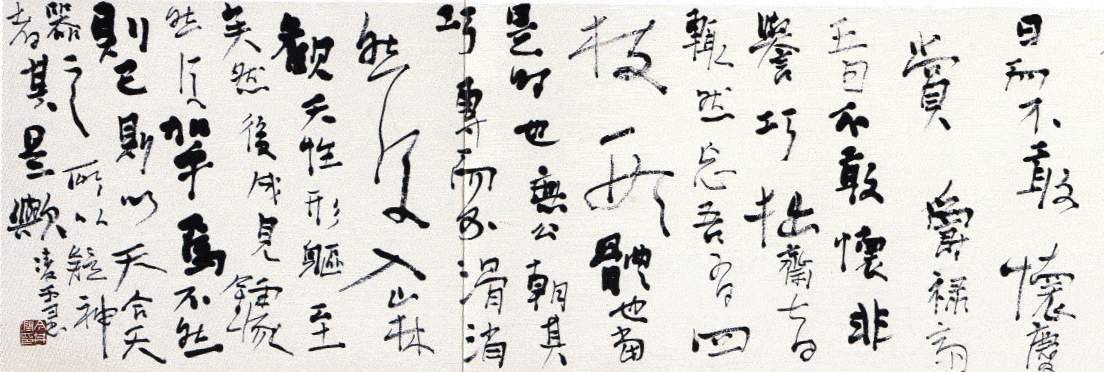 日而不敢懷慶
賞爵祿齋
五日不敢懷非
譽巧拙齋七日
輒然忘吾有四
枝形體也當
是時也無公朝其
巧專而外滑消
然後入山林
觀天性形軀至
矣然後成見鐻
然後加手焉不然
則已則以天合天
器之所以疑神
者其是歟